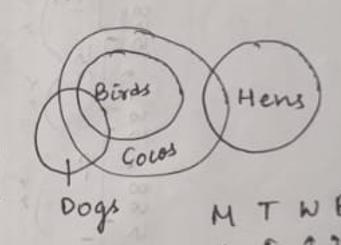 Birds
Hens
Cows
Dogs
M T W